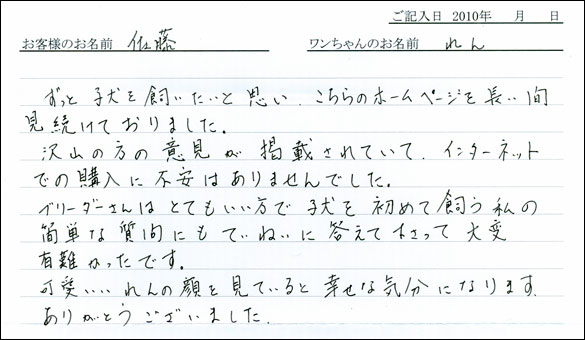 ご記入日 2010年 月 日
お客様のお名前 佐藤 ワンちゃんのお名前 れん
ずっと子犬を飼いたいと思い、こちらのホームページを長い間
見続けておりました。
沢山の方の意見が掲載されていて、インターネット
での購入に不安はありませんでした。
ブリーダーさんはとてもいい方で子犬を初めて飼う私の
簡単な質問にもていねいに答えて下さって大変
有難かったです。
可愛いいれんの顔を見ていると幸せな気分になります。
ありがとうございました。